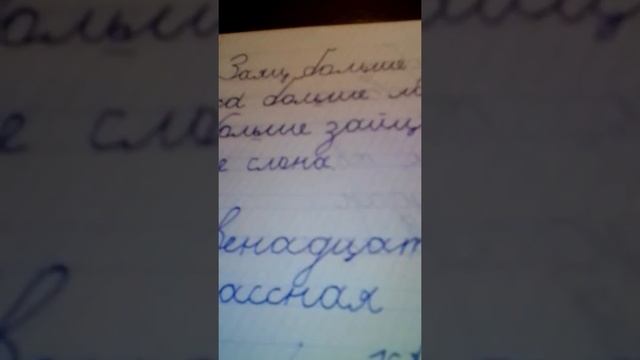 Заяц больше
больше
больше зайц
е слона
венадцат
ассная